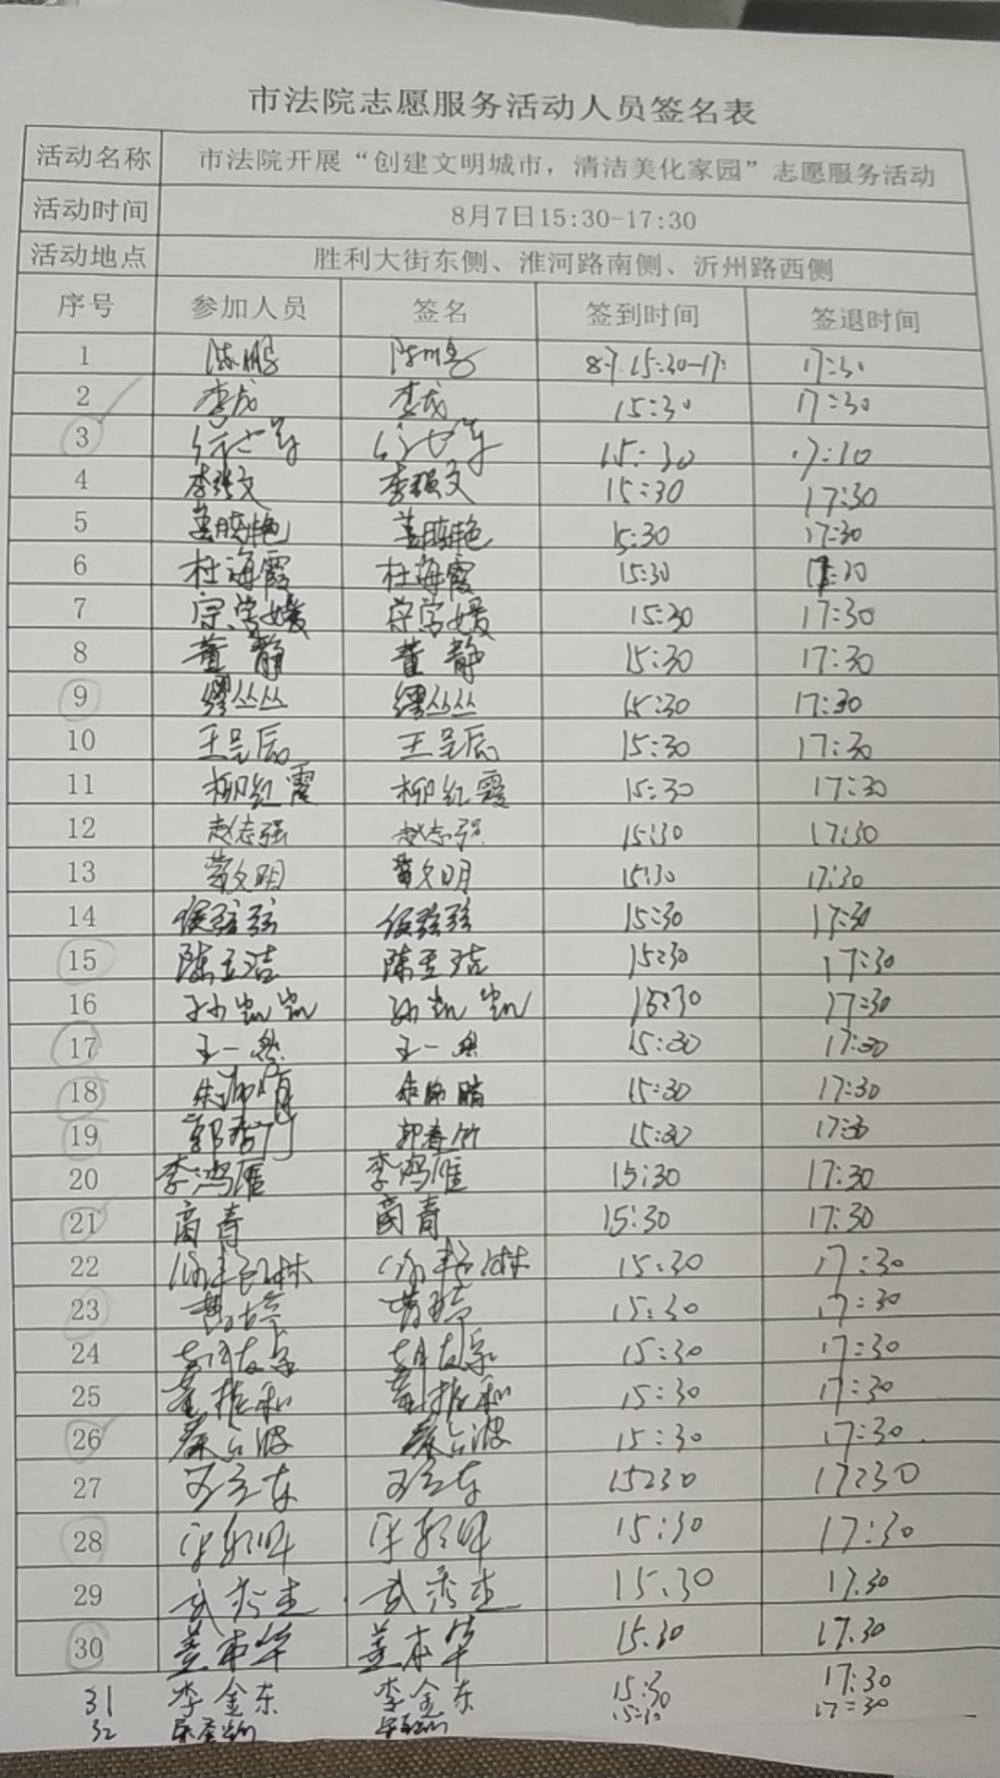 市法院志愿服务活动人员签名表
活动名称 市法院开展“创建文明城市，清洁美化家园”志愿服务活动
活动时间 8月7日15:30-17:30
活动地点 胜利大街东侧、淮河路南侧、沂州路西侧
序号 参加人员 签名 签到时间 签退时间
1 陈鹏 陈鹏 8.7. 15:30-17: 17:30
2 李成 李成 15:30 17:30
3 15:30 17:30
4 李强文 李强文 15:30 17:30
5 15:30 17:30
6 杜海霞 杜海霞 15:30 17:30
7 宗学媛 宗学媛 15:30 17:30
8 董静 董静 15:30 17:30
9 缪丛丛 缪丛丛 15:30 17:30
10 王呈辰 王呈辰 15:30 17:30
11 柳红霞 柳红霞 15:30 17:30
12 赵志强 赵志强 15:30 17:30
13 黄文明 黄文明 15:30 17:30
14 15:30 17:30
15 陈玉洁 陈玉洁 15:30 17:30
16 孙凯凯 孙凯凯 15:30 17:30
17 王一 王一 15:30 17:30
18 15:30 17:30
19 郭春竹 郭春竹 15:30 17:30
20 李鸿雁 李鸿雁 15:30 17:30
21 商青 商青 15:30 17:30
22 15:30 17:30
23 15:30 17:30
24 胡友泉 胡友泉 15:30 17:30
25 董振和 董振和 15:30 17:30
26 秦台波 秦台波 15:30 17:30.
27 15:30 17:30
28 15:30 17:30
29 武秀杰 武秀杰 15.30 17.30
30 姜本华 姜本华 15.30 17.30
31 李金东 李金东 15:30 17:30
32 15:30 17:30